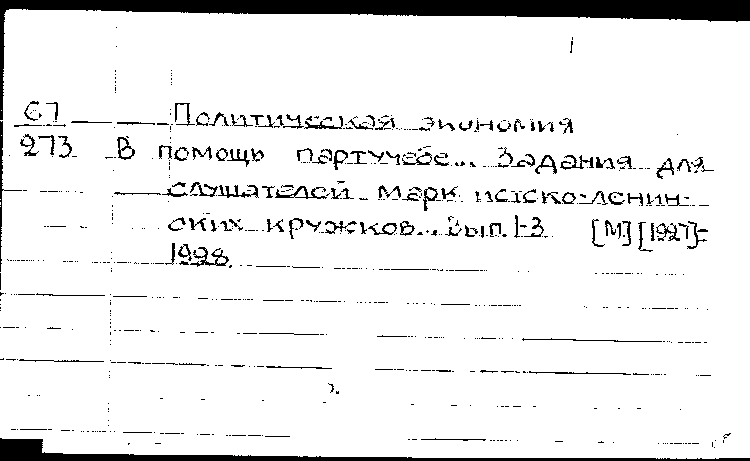 67 Политическая экономия
273 В помощь партучебе... Задания для
слушателей марксистско-ленин-
ских кружков... Вып. 1-3 [М] [1927]=
1928.